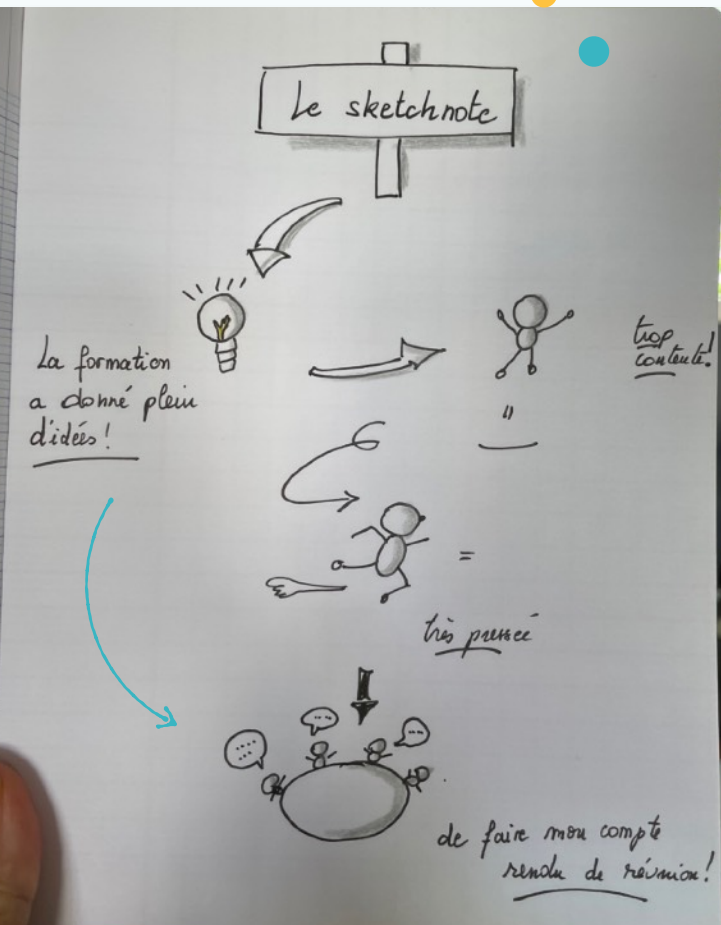 Le sketchnote
La formation
a donné plein
d'idées !
trop
contente !
"
=
très pressée
de faire mon compte
rendu de réunion !